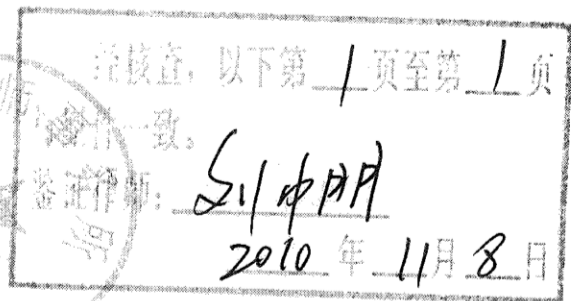 经核查，以下第1页至第1页
件一致。
鉴证律师：刘中明
2010年11月8日
师
所